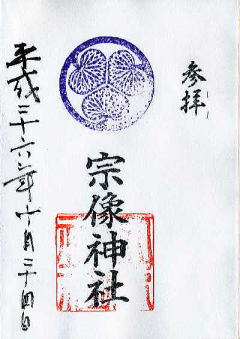 参拝
宗像神社
平成二十六年十月二十四日